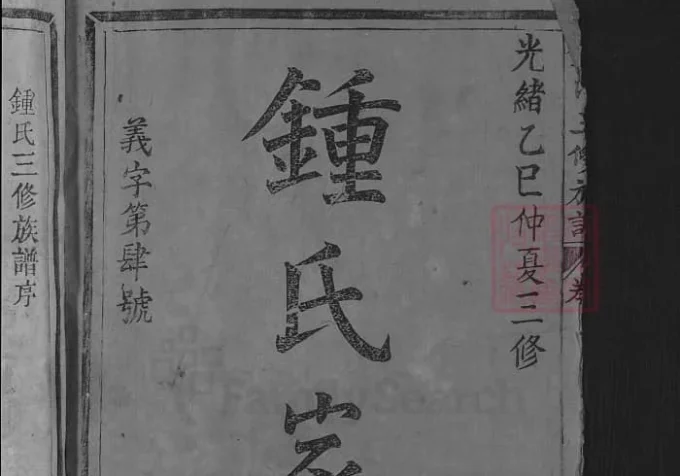 三修族譜 卷
光緒乙巳仲夏三修
鍾氏家
義字第肆號
鍾氏三修族譜序
FamilySearch